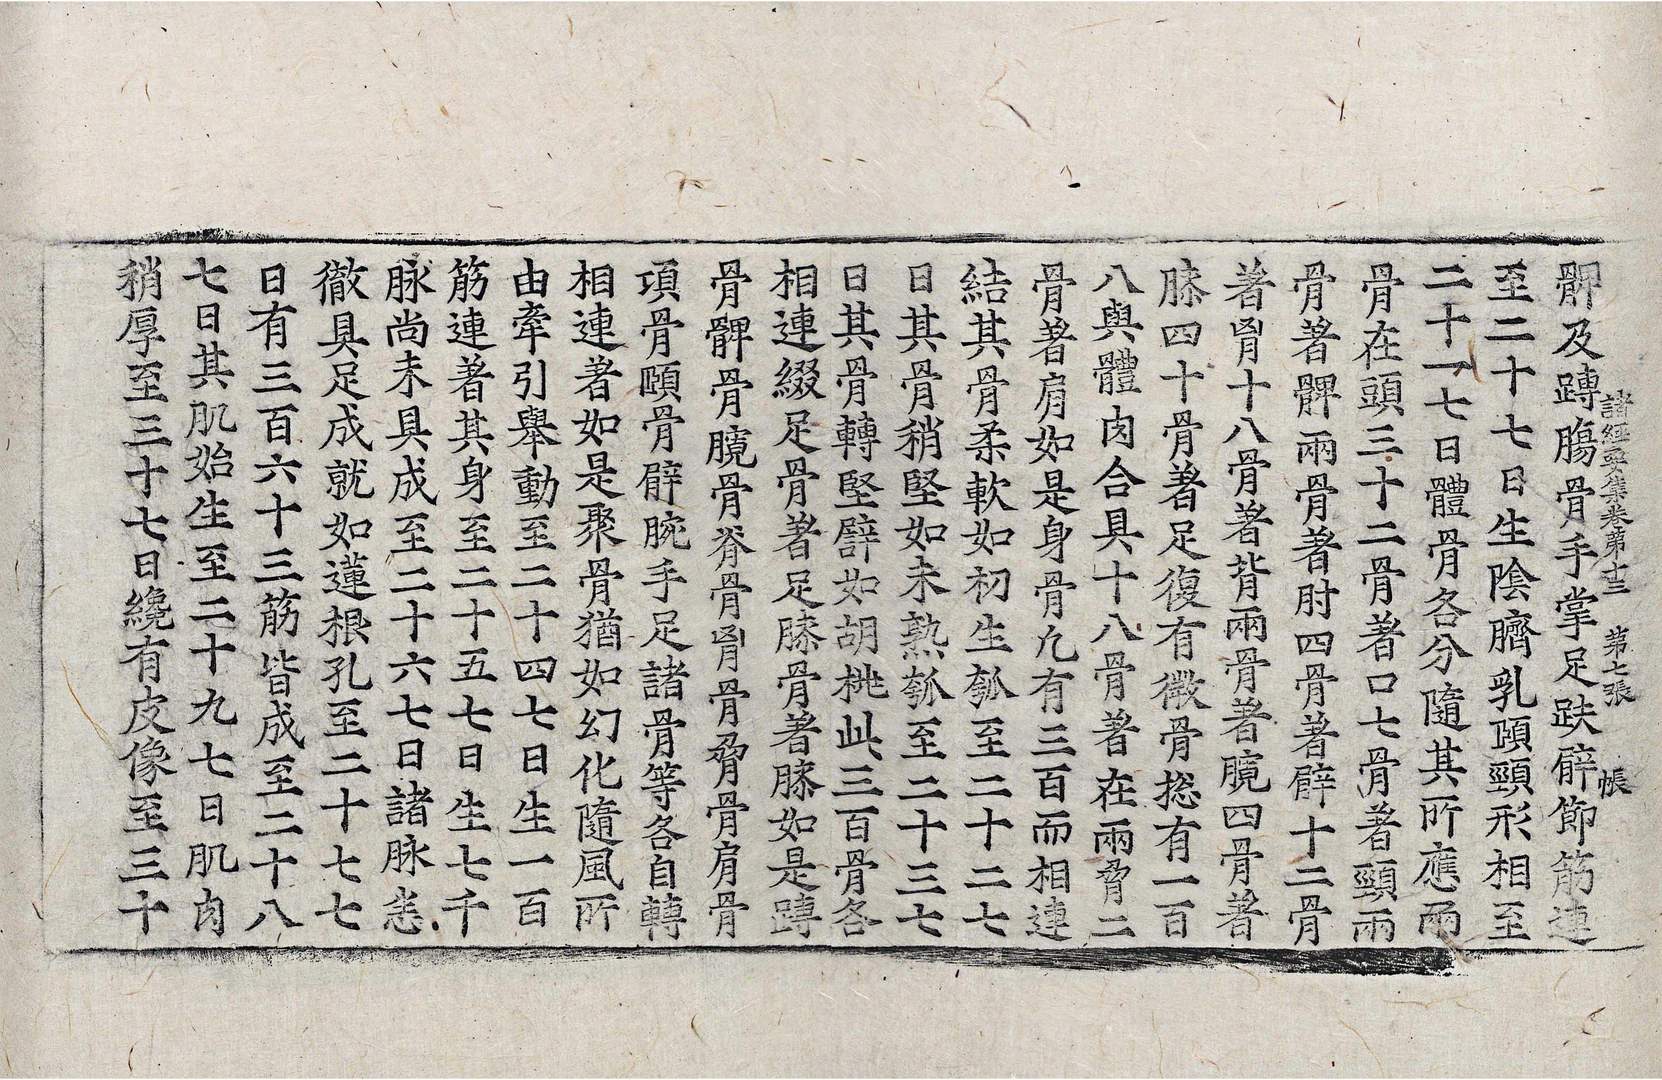 諸經要集卷第十三　第七張　帳
髀及蹲膓骨手掌足趺臂節筋連
至二十七日生陰臍乳頤頸形相至
二十一七日體骨各分隨其所應兩
骨在頭三十二骨著口七骨著頸兩
骨著髀兩骨著肘四骨著臂十二骨
著胷十八骨著背兩骨著臗四骨著
膝四十骨著足復有微骨揔有一百
八與體肉合具十八骨著在兩脅二
骨著肩如是身骨凢有三百而相連
結其骨柔軟如初生瓠至二十二七
日其骨稍堅如未熟瓠至二十三七
日其骨轉堅譬如胡桃此三百骨各
相連綴足骨著足膝骨著膝如是蹲
骨髀骨臗骨脊骨胷骨脅骨肩骨
項骨頤骨臂腕手足諸骨等各自轉
相連著如是聚骨猶如幻化隨風所
由牽引舉動至二十四七日生一百
筋連著其身至二十五七日生七千
脉尚未具成至二十六七日諸脉悉
徹具足成就如蓮根孔至二十七七
日有三百六十三筋皆成至二十八
七日其肌始生至二十九七日肌肉
稍厚至三十七日纔有皮像至三十